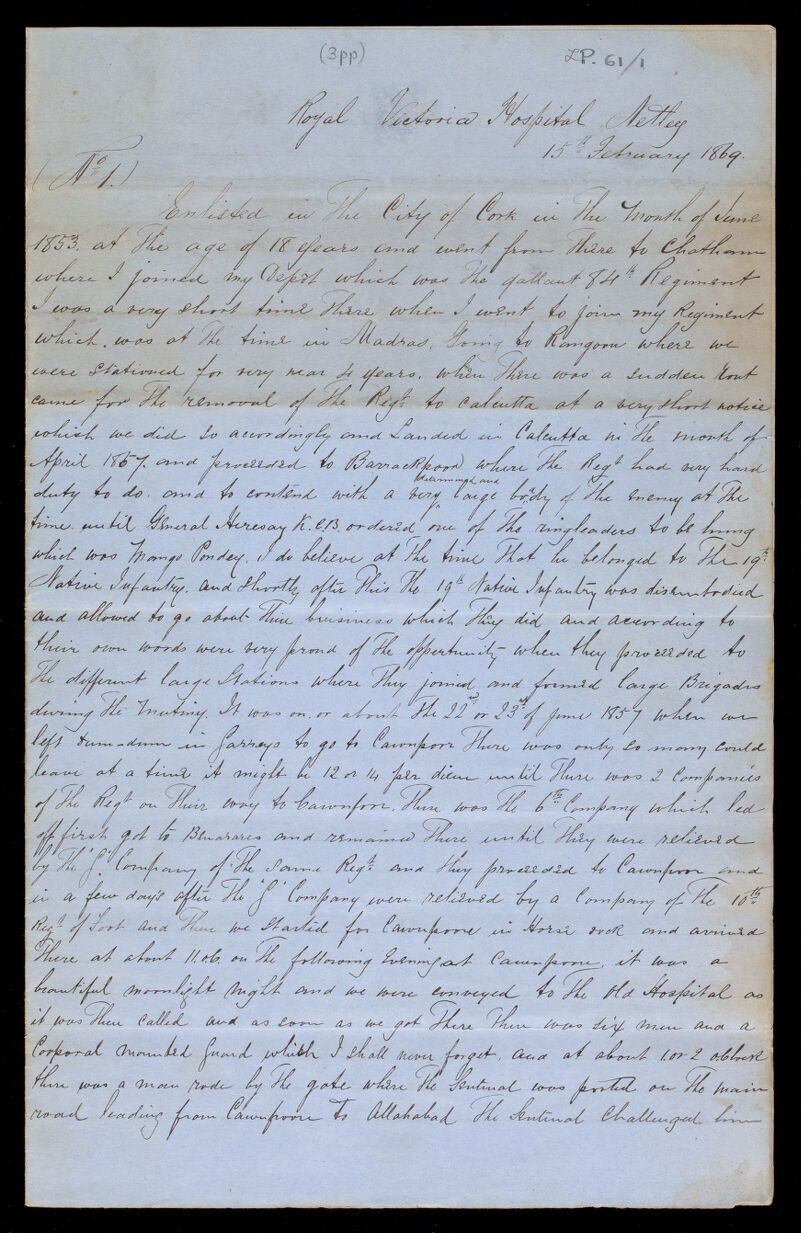 (3pp)
LP. 61/1
Royal Victoria Hospital Netley
15th February 1869.
(No 1.)
Enlisted in The City of Cork in The Month of June
1853. at The age of 18 Years and went from There to Chatham
where I joined my Depôt which was The gallant 84th Regiment
I was a very short time There when I went to join my Regiment
which. was at The time in Madras, Going to Rangoon where we
were stationed for very near 4 years. when There was a sudden Rout
came for The removal of The Regt to Calcutta at a very short notice
which we did so accordingly and Landed in Calcutta in The month of
April 1857. and proceeded to Barrackpoor where The Regt had very hard
duty to do. and to contend with a very large body of The enemy at The
time. until General Heresay K.C.B. ordered one of The ringleaders to be hung
which was Mango Pondey. I do believe at The time That he belonged to The 19th
Native Infantry. and Shortly after This The 19th Native Infantry was disembodied
and allowed to go about Thire buisiness which They did and according to
their own words were very proud of The oppertunity when they proceeded to
The different large Stations where They joined and formed large Brigades
during The Mutiny. It was on or about The 22nd or 23rd of June 1857 when we
left dumdum in Garreys to go to Cawnpoor There was only so many could
leave at a time it might be 12 or 14 per diem until There was 2 Companies
of The Regt on Their way to Cawnpoor. There was The 6th Company which led
off first got to Benarares and remained There until They were relieved
by The "G" Company of The same Regt and They proceeded to Cawnpoor and
in a few day's after The "G" Company were relieved by a Company of The 10th
Regt of Foot and Then we started for Cawnpoore in Horse and arrived
There at about 11.ob. on The following Evening at Cawnpoore, it was a
beautiful moonlight Night and we were conveyed to The Old Hospital as
it was Then called and as soon as we got There Then was six men and a
Corporal mounted Guard which I shall never forget. and at about 1 or 2 oblock
there was a man rode by The gate where The Sentinal was posted on The main
road leading from Cawnpoore To Allahabad The Sentinal Challenged him